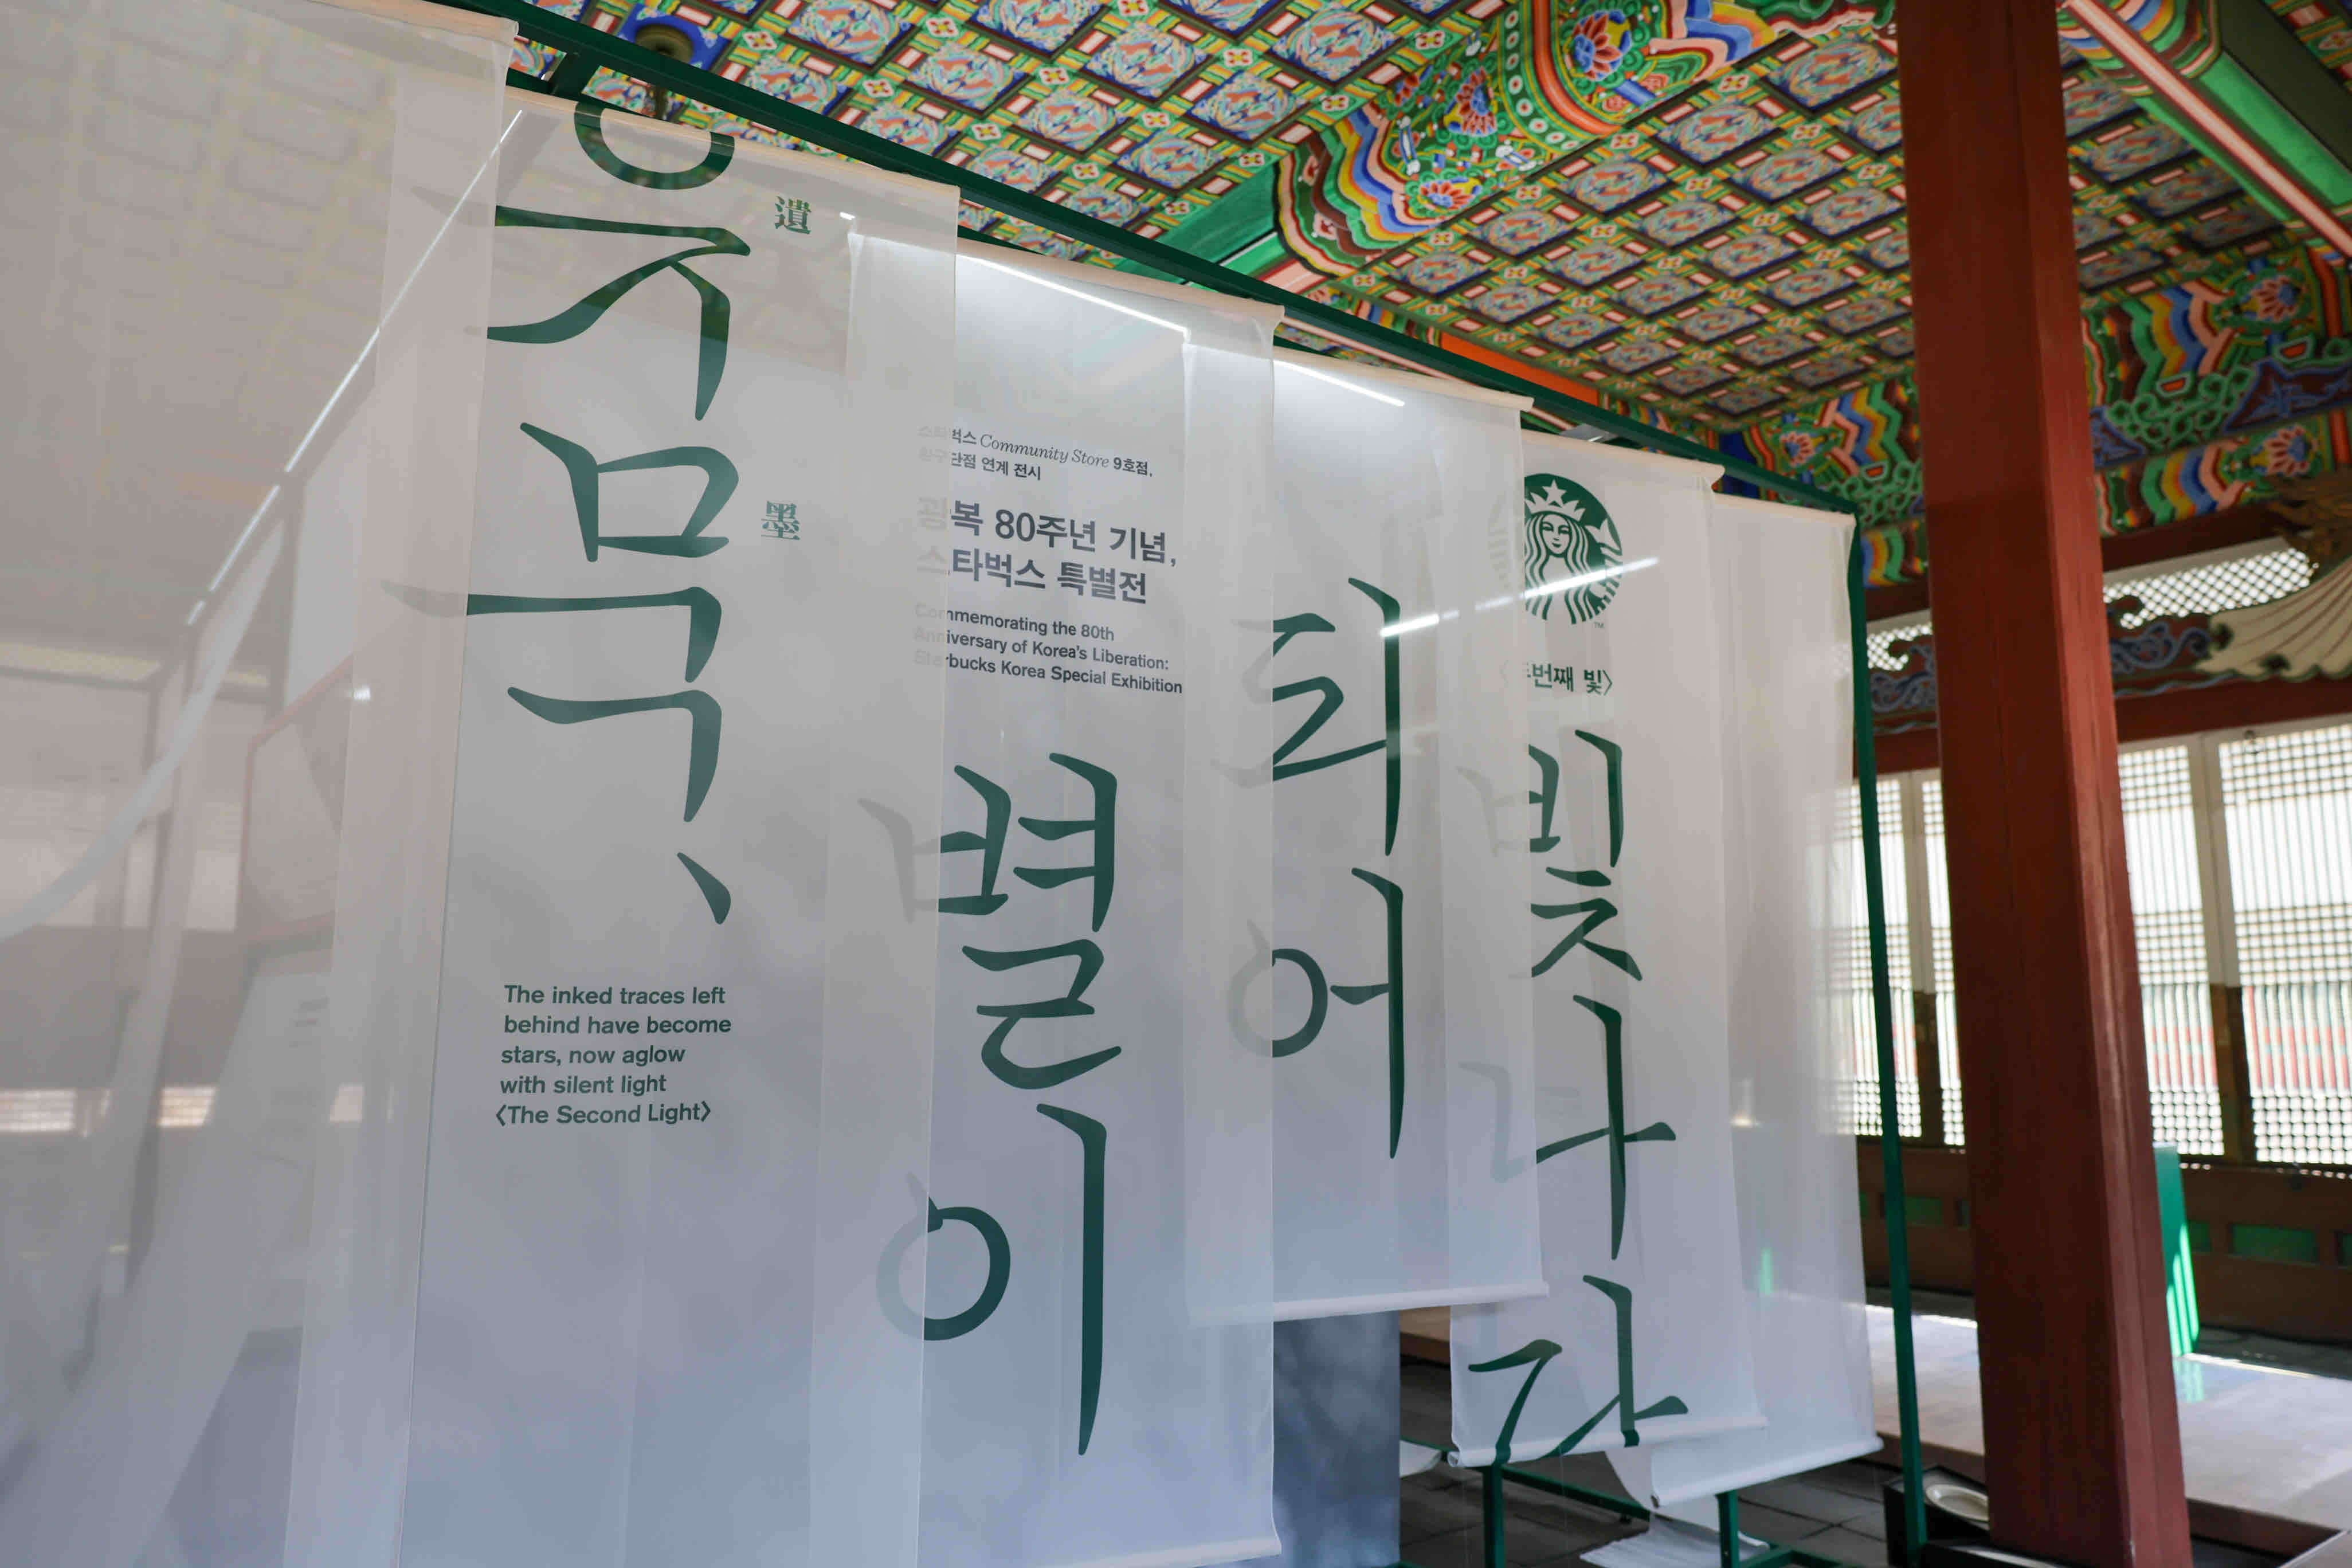 유묵,
遺
墨
The inked traces left
behind have become
stars, now aglow
with silent light
〈The Second Light〉
스타벅스 Community Store 9호점,
환구단점 연계 전시
광복 80주년 기념,
스타벅스 특별전
Commemorating the 80th
Anniversary of Korea's Liberation:
Starbucks Korea Special Exhibition
별이
되어
TM
〈두번째 빛〉
빛나다